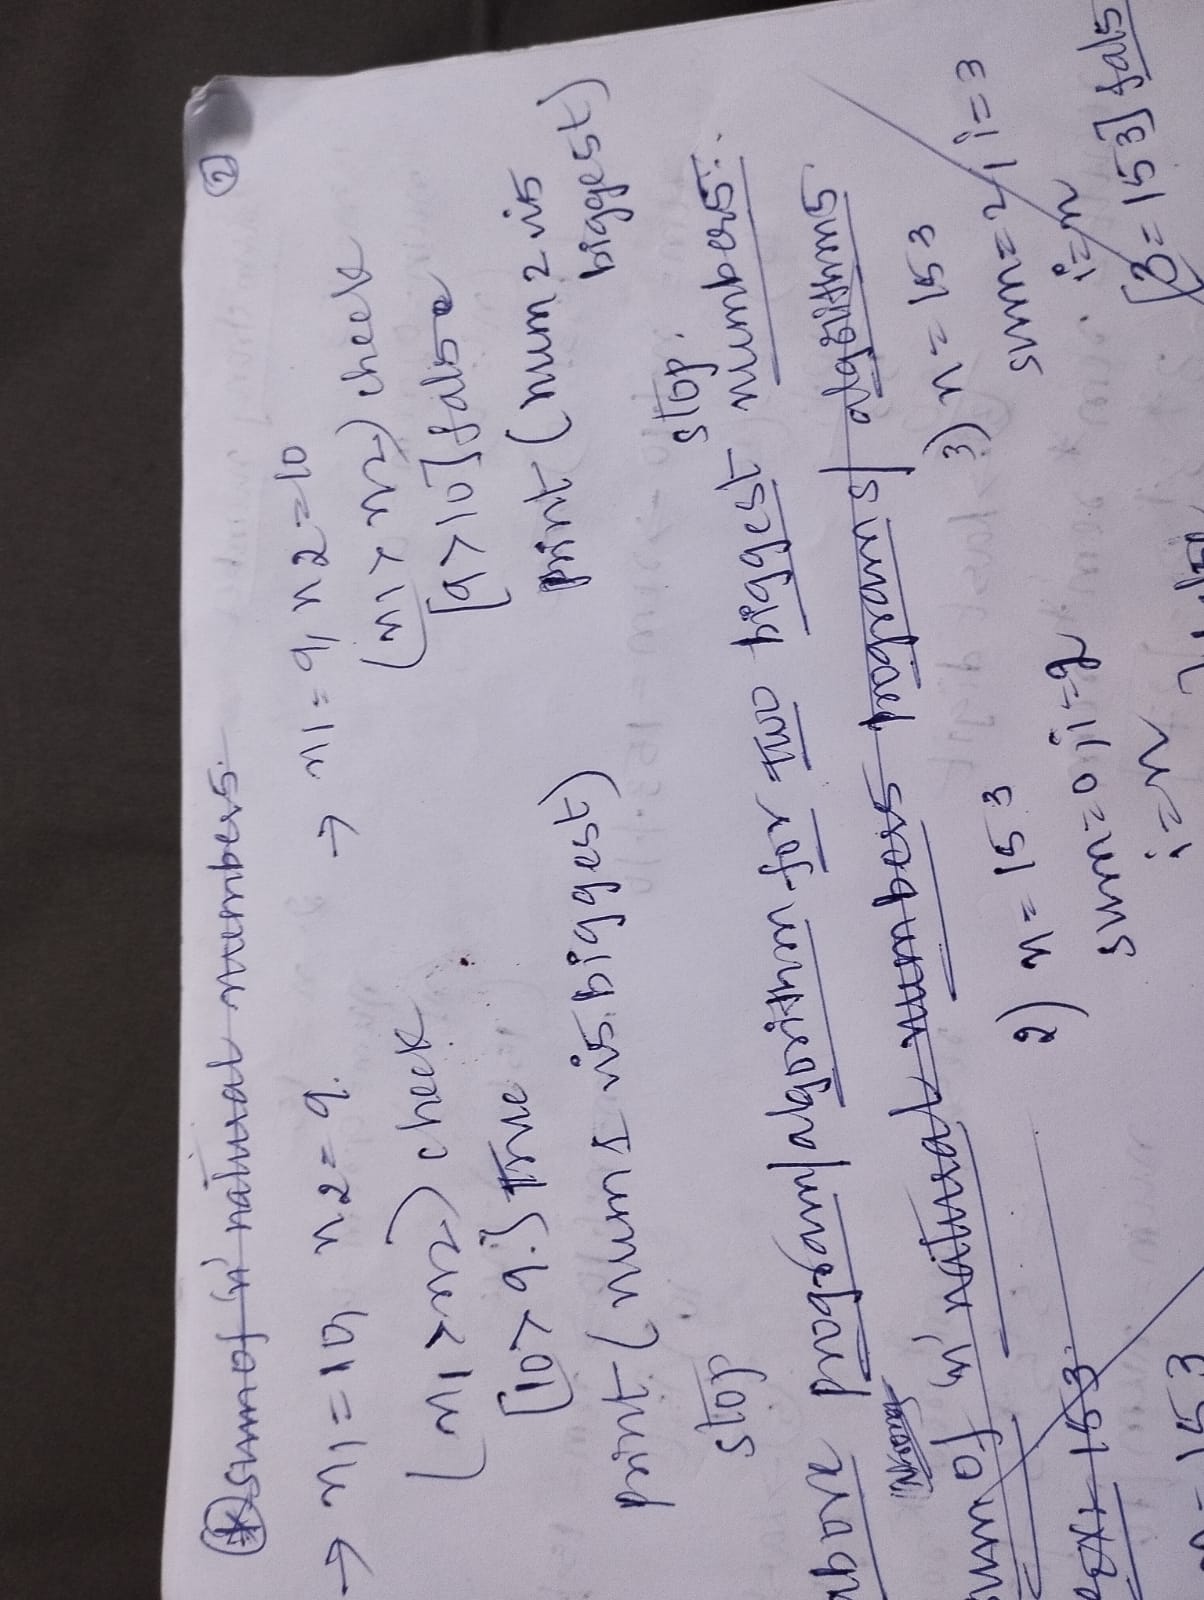 sum of 'n' natural numbers.
2
→ n1=10, n2=9.
(n1>n2) check
[10>9.] True
print (num1 is biggest)
stop
→ n1=9, n2=10
(n1>n2) check
[9>10] false
print (num2 is
biggest)
stop.
above program/algorithm for two biggest numbers.
wrong
sum of 'n' natural numbers programs/ algorithms
153
n=153
2) n=153
sum=0, i=2
i=n
3) n=153
sum=2, i=3
i=n
[3=153] fals